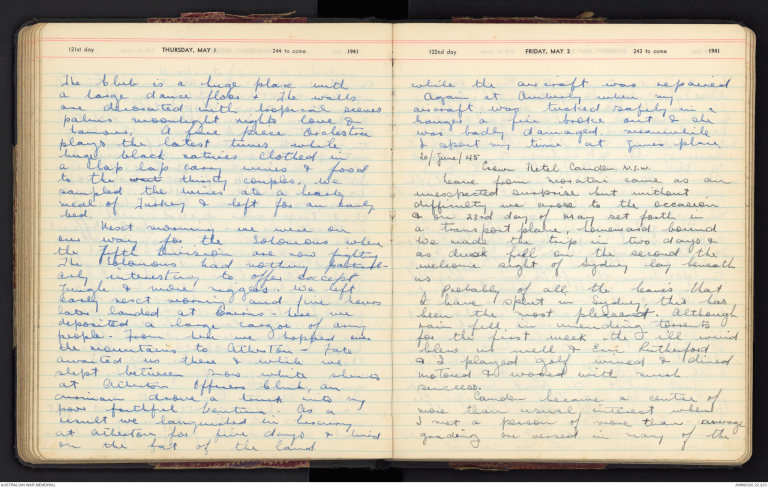 121st day THURSDAY, MAY 1 244 to come 1941
The Club is a huge place with
a large dance floor & the walls
are decorated with tropical scenes
palms moonlight nights love &
famous. A five piece Orchestra
plays the latest tunes while
huge black natives clothed in
a lap lap carry wines & food
to the thirsty couples. We
sampled the wines ate a hearty
meal of Turkey & left for an early
bed.
Next morning we were on
our way for the Solomons, where
the Fifth Division are now fighting
The Solomons had nothing particul-
arly interesting to offer except
Jungle & more niggers. We left
early next morning and five hours
later landed at Cairns - here we
deposited a large cargo of army
people. From here we hopped over
the mountains to Atherton - Fate
awaited us there & while we
slept between snow white sheets
at Atherton Officers Club, an
airman drove a truck into my
poor faithful Beaufort. As a
result we languished in luxury
at Atherton for five days & lived
on the fat of the land
122nd day FRIDAY, MAY 2 243 to come 1941
while the aircraft was repaired
Again at Amberley when my
aircraft was tucked safely in a
hanger a fire broke out & she
was badly damaged. meanwhile
I spent my time at Junes place.
20/June/45
Crown Hotel Camden N.S.W.
Leave from Morotai came as an
unexpected surprise but without
difficulty we arose to the occasion
& on 23rd day of May set forth in
a transport plane, homeward bound
We made the trip in two days &
as dusk fell on the second the
welcome sight of Sydney lay beneath
us
Probably of all the leaves that
I have spent in Sydney, this has
been the most pleasant. Although
rain fell in unending torrents
for the first week the I ill wind
blew us well & Eric Rutherford
& I played golf wined & dined
motored & wooed with much
success.
Camden became a centre of
more than usual interest when
I met a person of more than average
grading one versed in many of the
AUSTRALIAN WAR MEMORIAL